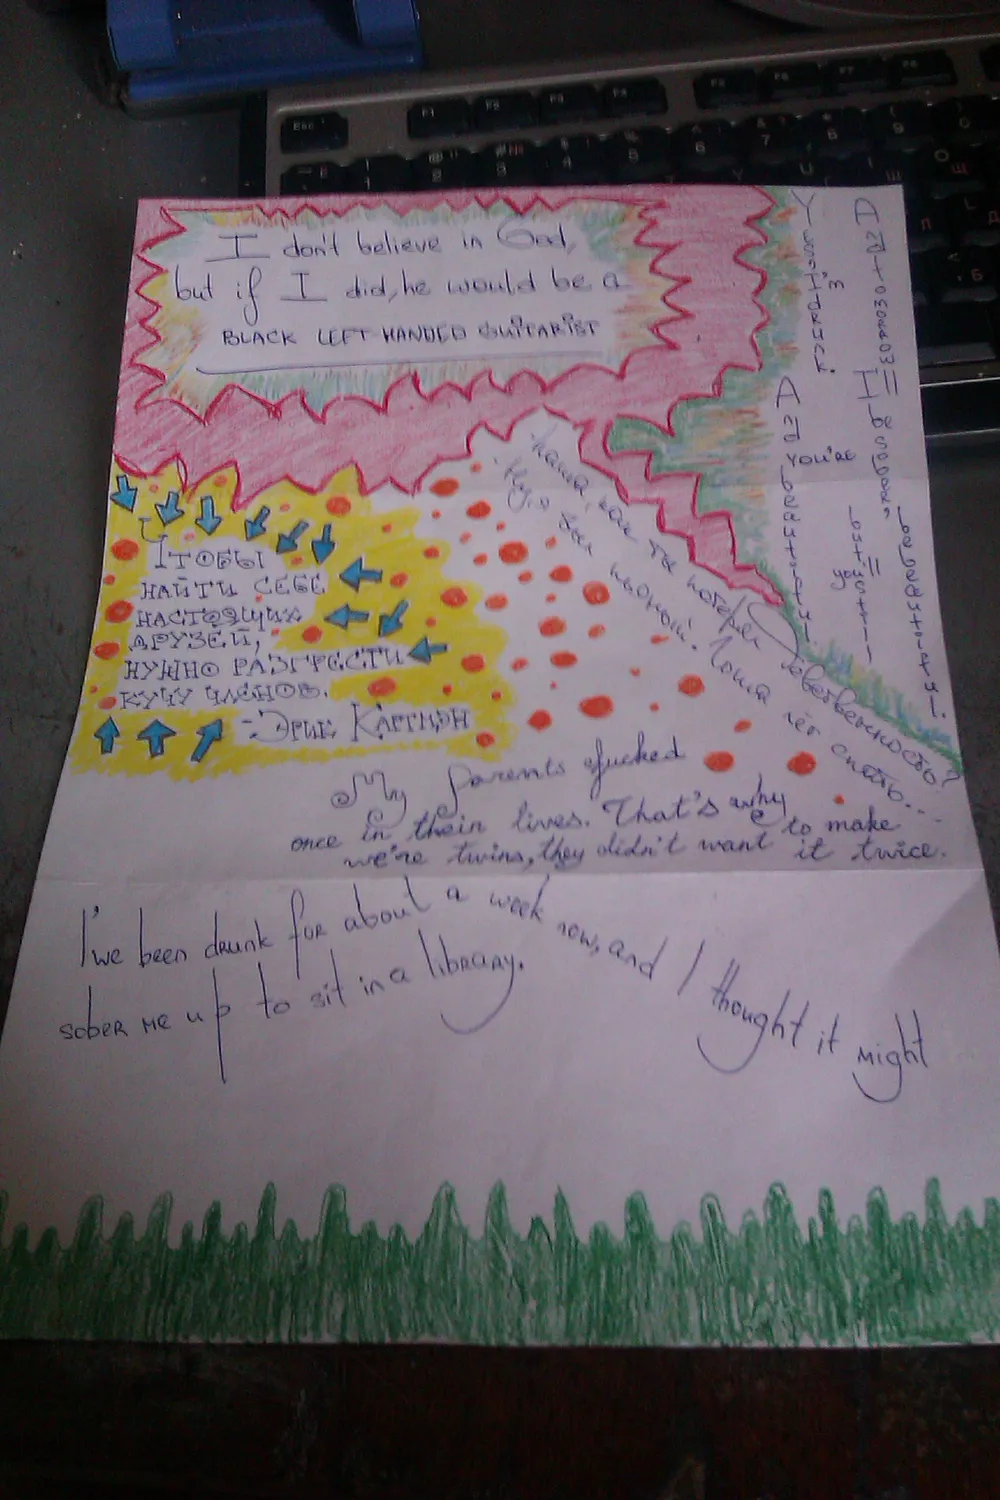 I don't believe in God,
but if I did, he would be a
BLACK LEFT-HANDED GUITARIST
Yes, I'm drunk.
And you're beautiful.
And tomorrow I'll be sober,
but you'll still be beautiful.
Чтобы
найти себе
настоящих
друзей,
нужно разгрести
кучу членов.
- Эрик Картмэн
Паша, как ты потерял девственность?
Ну, я был пьяный. Поша лёг спать...
My parents fucked
once in their lives. That's why
we're twins, they didn't want to make it twice.
I've been drunk for about a week now, and I thought it might
sober me up to sit in a library.
Esc
F1
F2
F3
F4
F5
F6
F7
F8